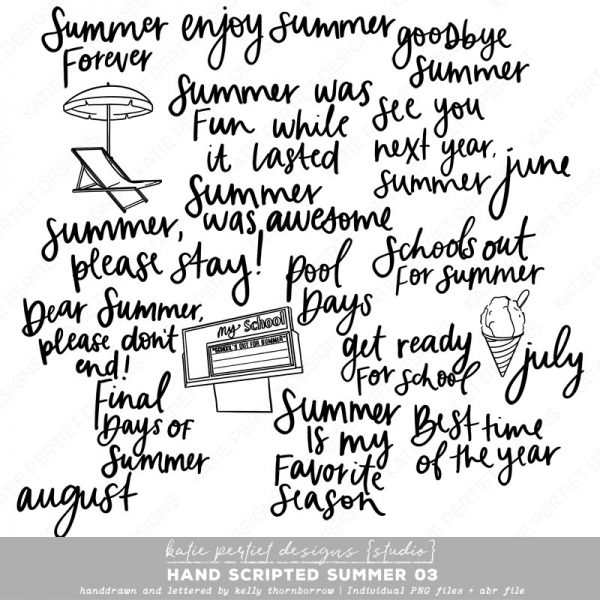 Summer
Forever
enjoy summer
goodbye
summer
Summer was
Fun while
it lasted
See you
next year,
summer
june
Summer
was awesome
Summer,
please stay!
Schools out
For summer
Pool
Days
Dear Summer,
please don't
end!
my School
"SCHOOL'S OUT FOR SUMMER"
get ready
For school
july
Final
Days of
Summer
Summer
Is my
Favorite
Season
Best time
of the year
august
katie pertiet designs {studio}
HAND SCRIPTED SUMMER 03
handdrawn and lettered by kelly thornborrow | Individual PNG files + abr file